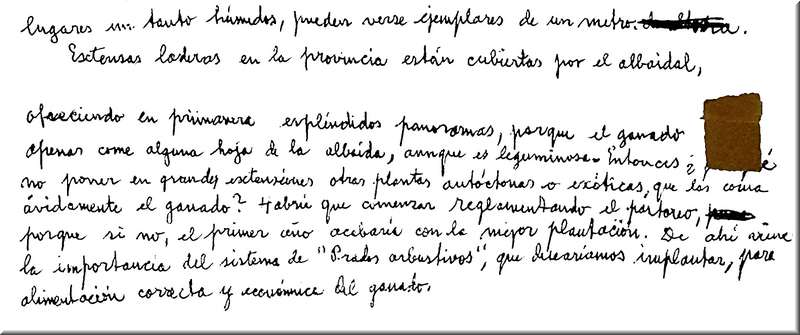 lugares un tanto húmedos, pueden verse ejemplares de un metro.
Extensas laderas en la provincia están cubiertas por el albaidal,
ofreciendo en primavera espléndidos panoramas, porque el ganado
apenas come alguna hoja de la albaida, aunque es leguminosa. Entonces ¿
no poner en grandes extensiones otras plantas autóctonas o exóticas, que las coma
ávidamente el ganado? Habría que comenzar reglamentando el pastoreo,
porque si no, el primer año acabaría con la mejor plantación. De ahí viene
la importancia del sistema de "Prados arbustivos", que desearíamos implantar, para
alimentación correcta y económica del ganado.